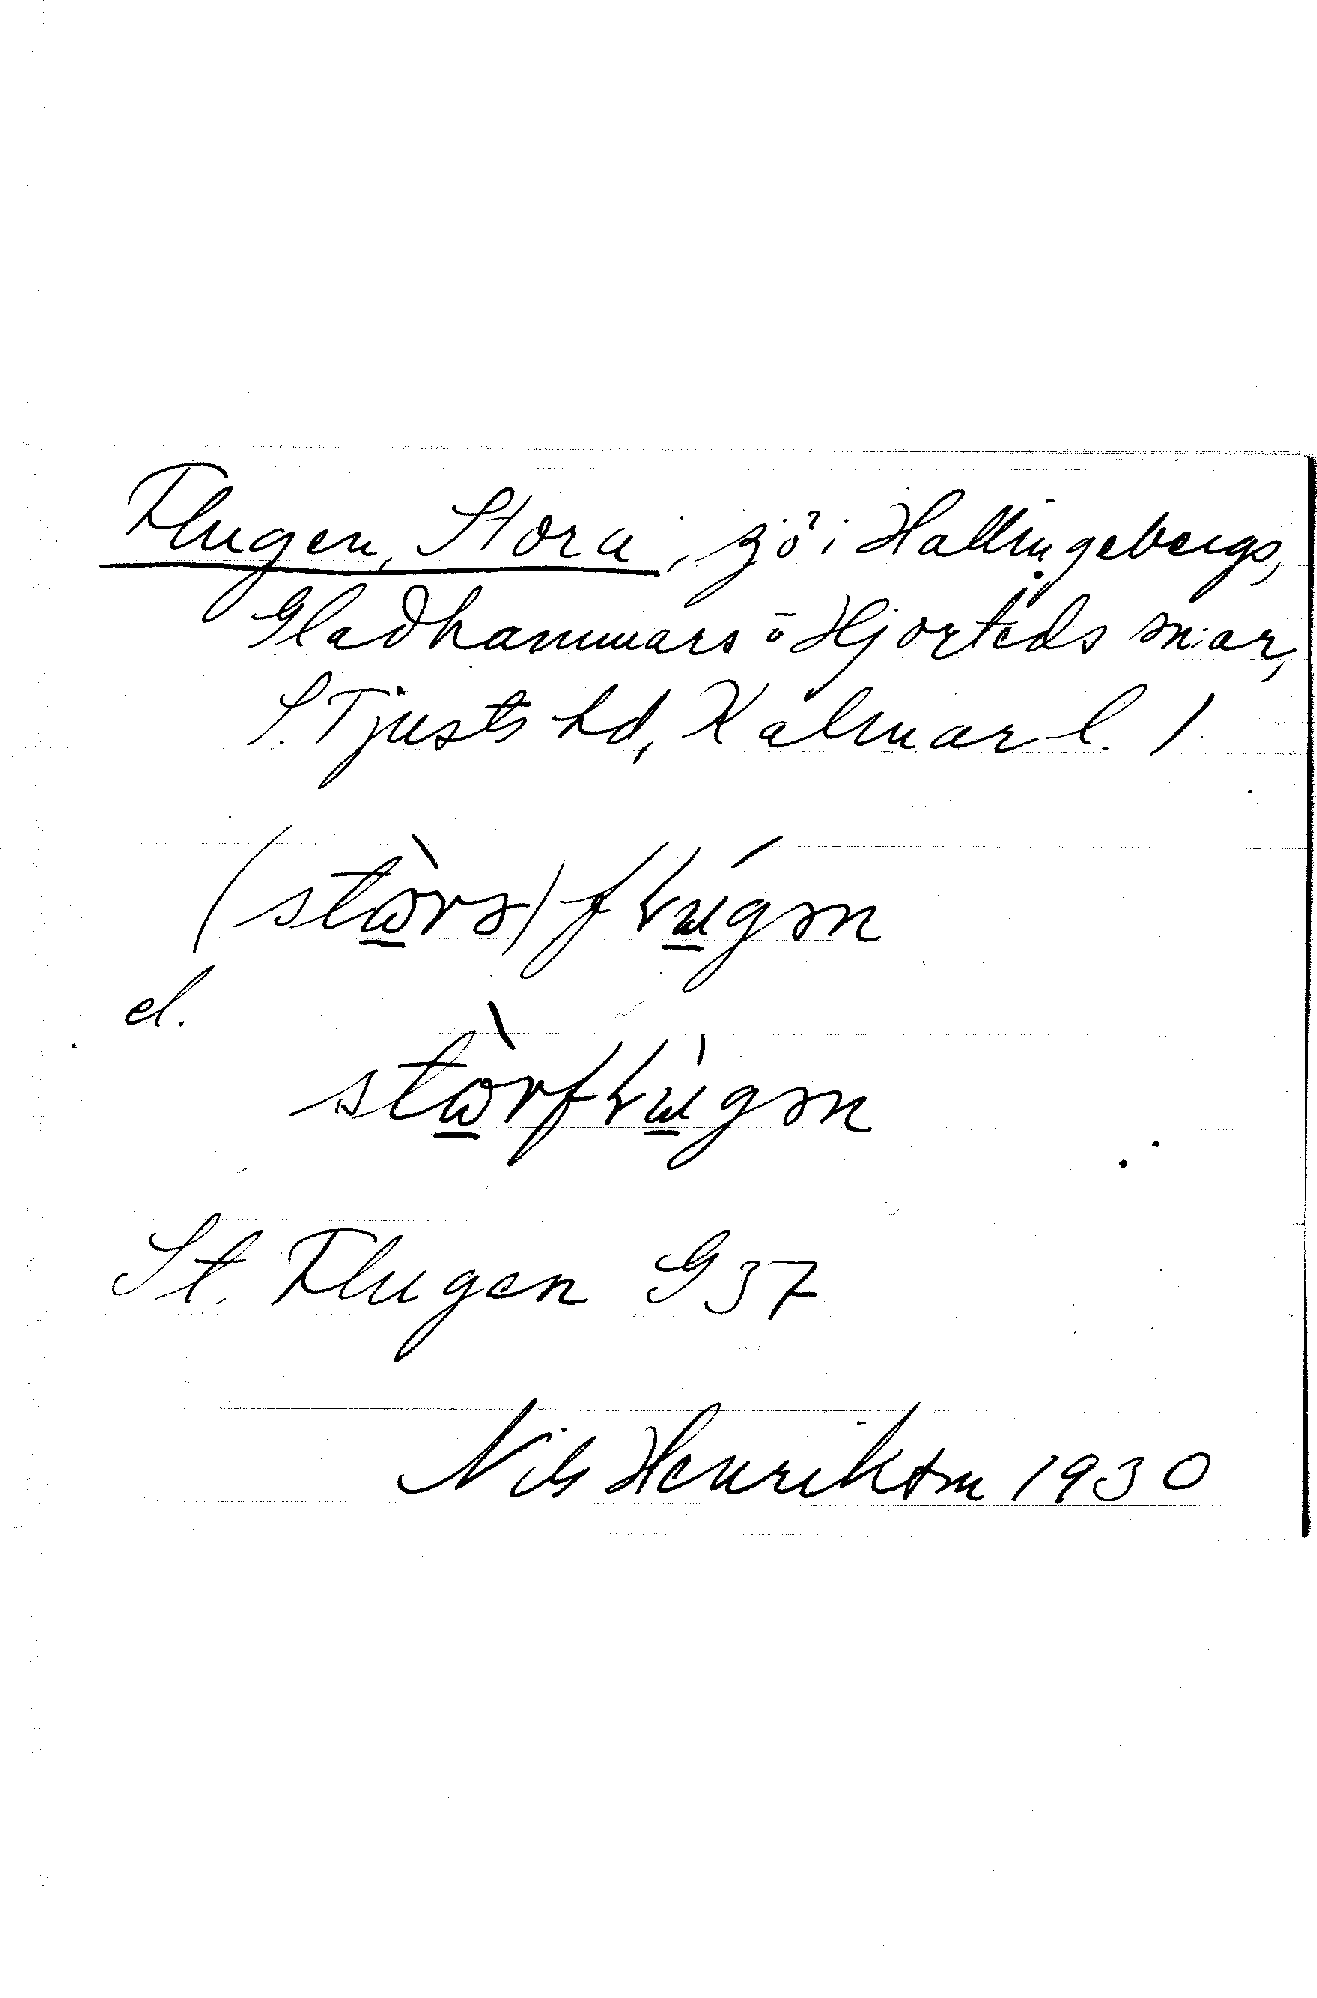 Flugen, Stora, sjö i Hallingebergs,
Gladhammars o Hjorteds snar,
S. Tjusts hd, Kalmar l. /
(stὼ̲rə) fɽú̲gən
el.
stὼ̲rfɽù̲gən
St. Flugen G 37
Nils Henrikson 1930